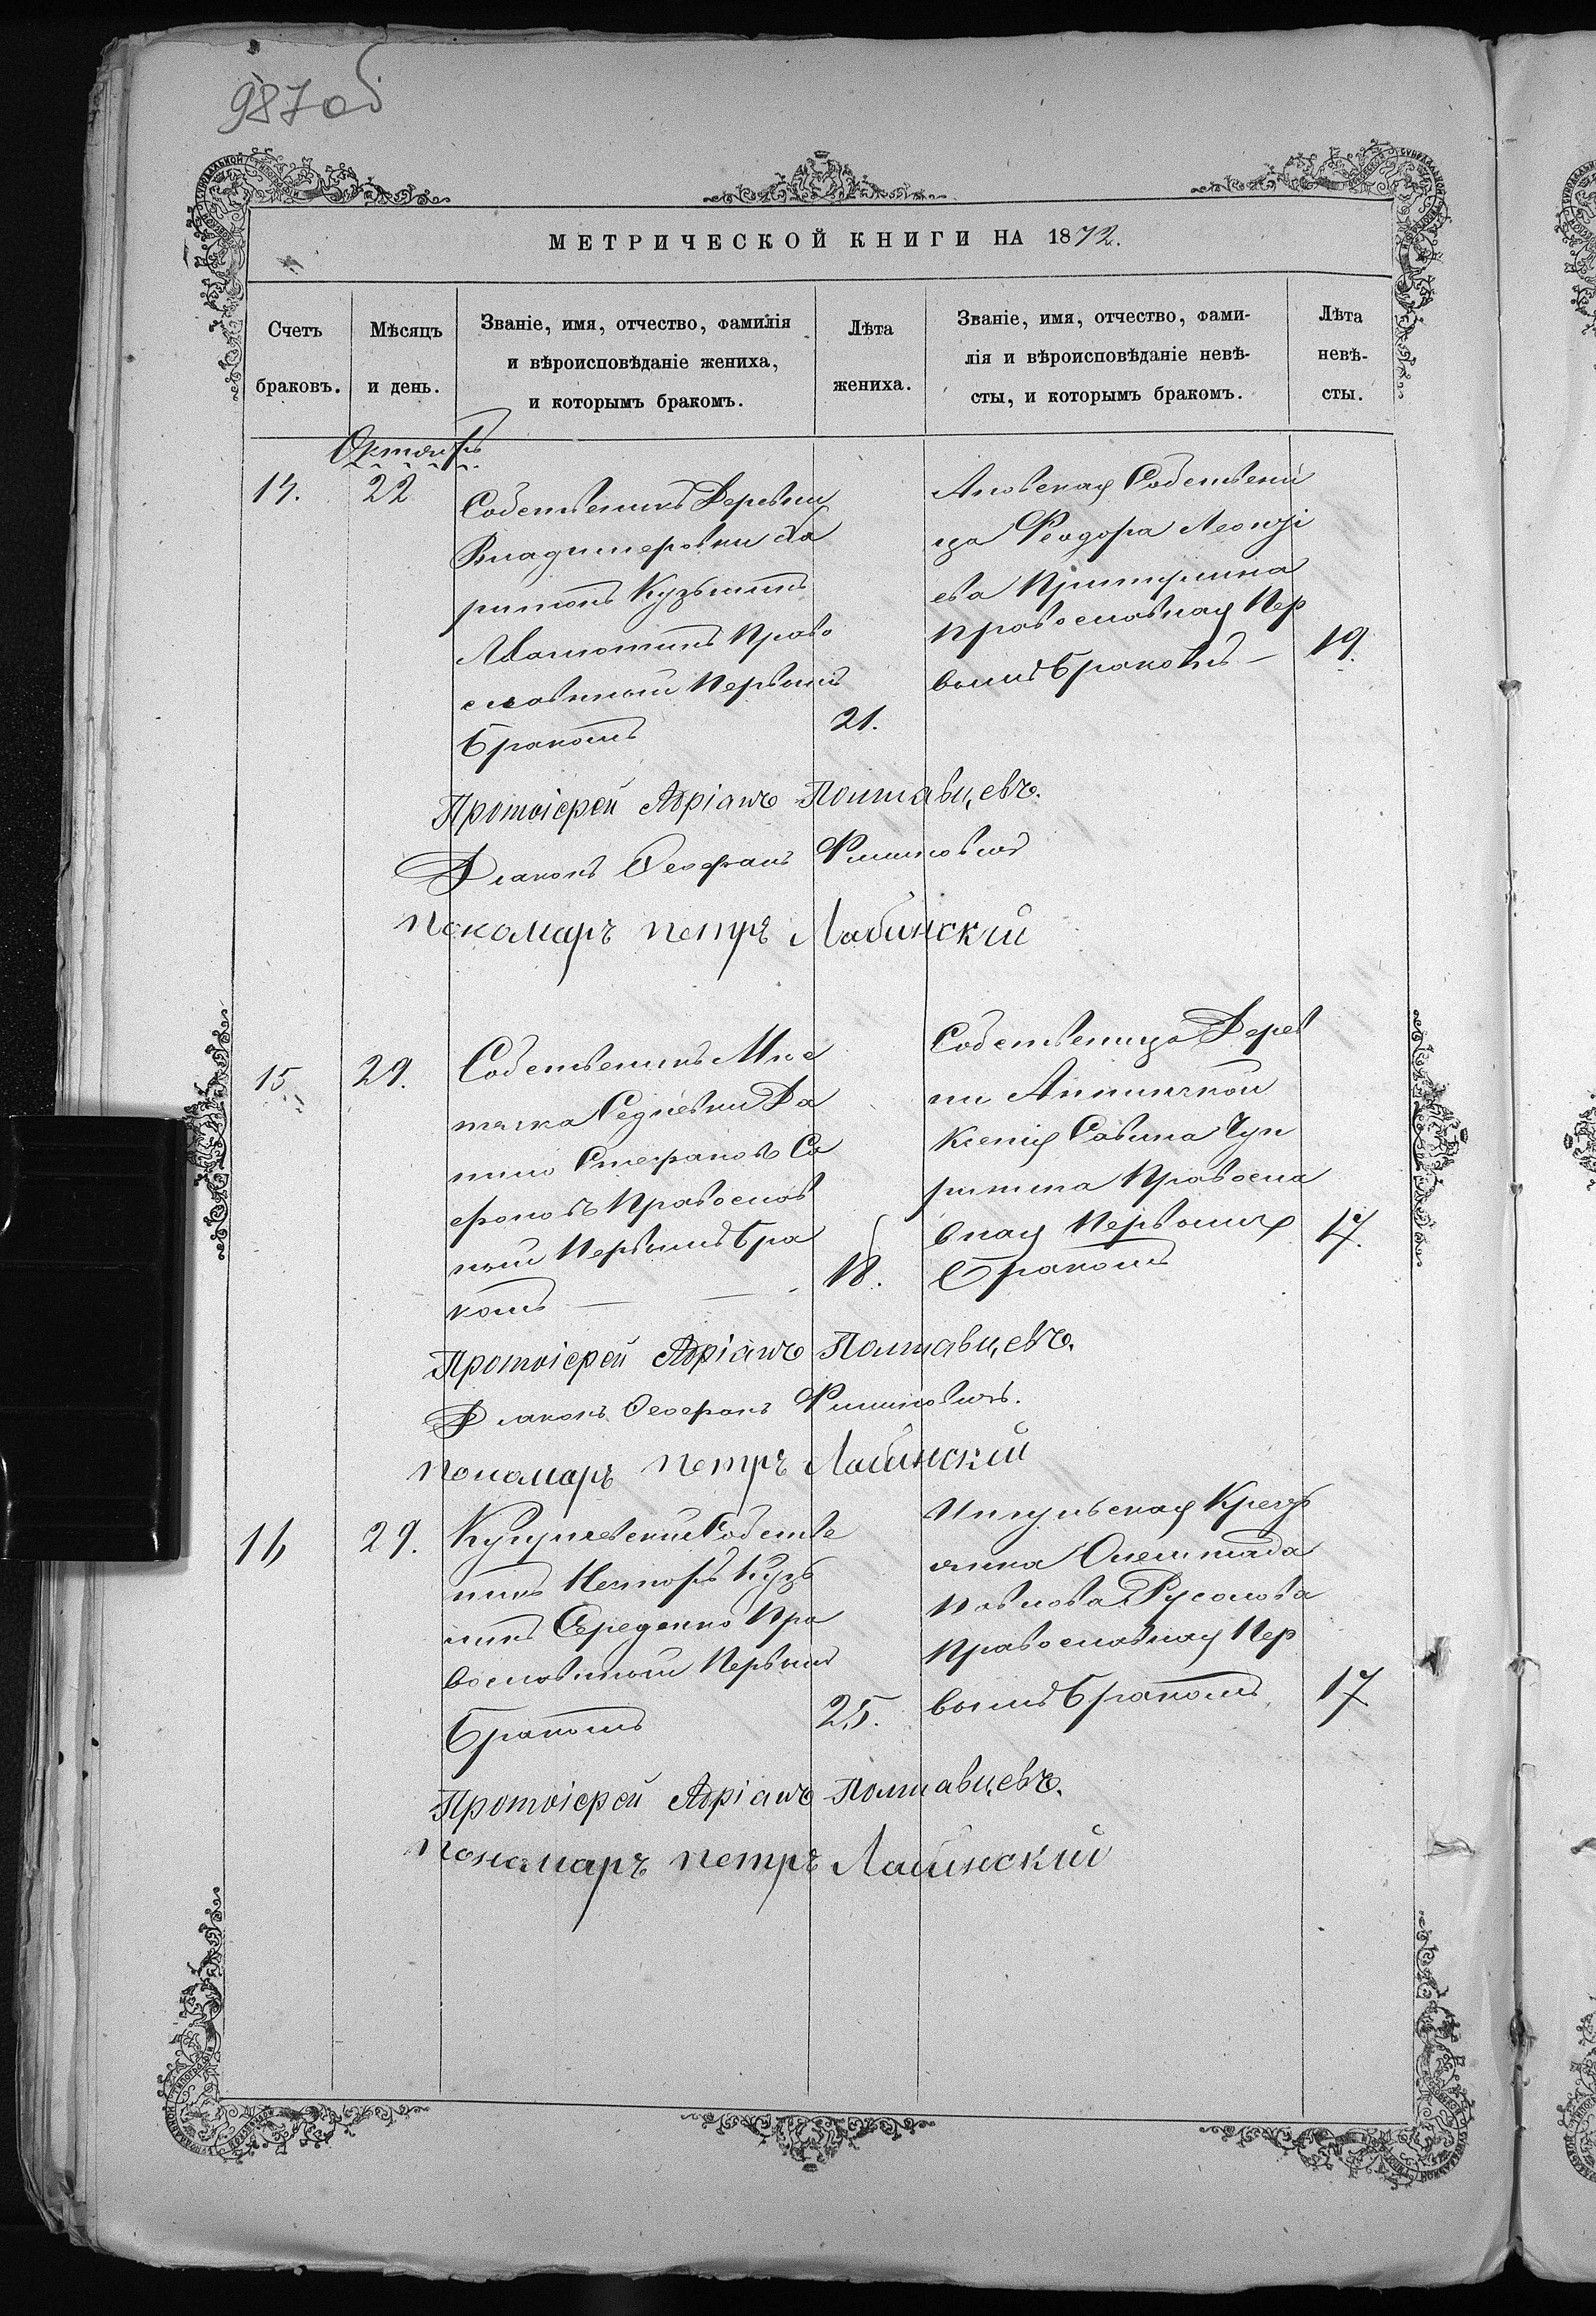 987об
МЕТРИЧЕСКОЙ КНИГИ НА 1872.
Счетъ браковъ.
Мѣсяцъ и день.
Званіе, имя, отчество, фамилія
и вѣроисповѣданіе жениха,
и которымъ бракомъ.
Лѣта жениха.
Званіе, имя, отчество, фами-
лія и вѣроисповѣданіе невѣ-
сты, и которымъ бракомъ.
Лѣта невѣ-
сты.
Октябрь
14. 22
Собственикъ Деревни
Владимеровки Ха
ритонъ Кузьминъ
Право
славный Первымъ
бракомъ
21.
Собствени
ца Феодора Леонті
ева
Православная Пер
вымъ бракомъ —
19.
Протоіерей Адріанъ Полтавцевъ.
Діаконъ Феофанъ
Пономаръ Петръ Лабинский
15 29.
Собственикъ Мѣс
течка Седневки Да
нило Стефановъ Са
фоновъ Православ
ный Первымъ бра
комъ
18.
Собственица Дерев
ни Аннинской
Ксенія Савина Чуп
ринина Правосла
вная Первымъ
бракомъ
17.
Протоіерей Адріанъ Полтавцевъ.
Діаконъ Феофанъ
Пономаръ Петръ Лабинский
16 29.
Собстве
никъ Несторъ Кузь
минъ Середенко Пра
вославный Первымъ
бракомъ
25.
Ингульская Кресть
янка
Павлова Русалова
Православная Пер
вымъ бракомъ
17
Протоіерей Адріанъ Полтавцевъ.
Пономаръ Петръ Лабинский